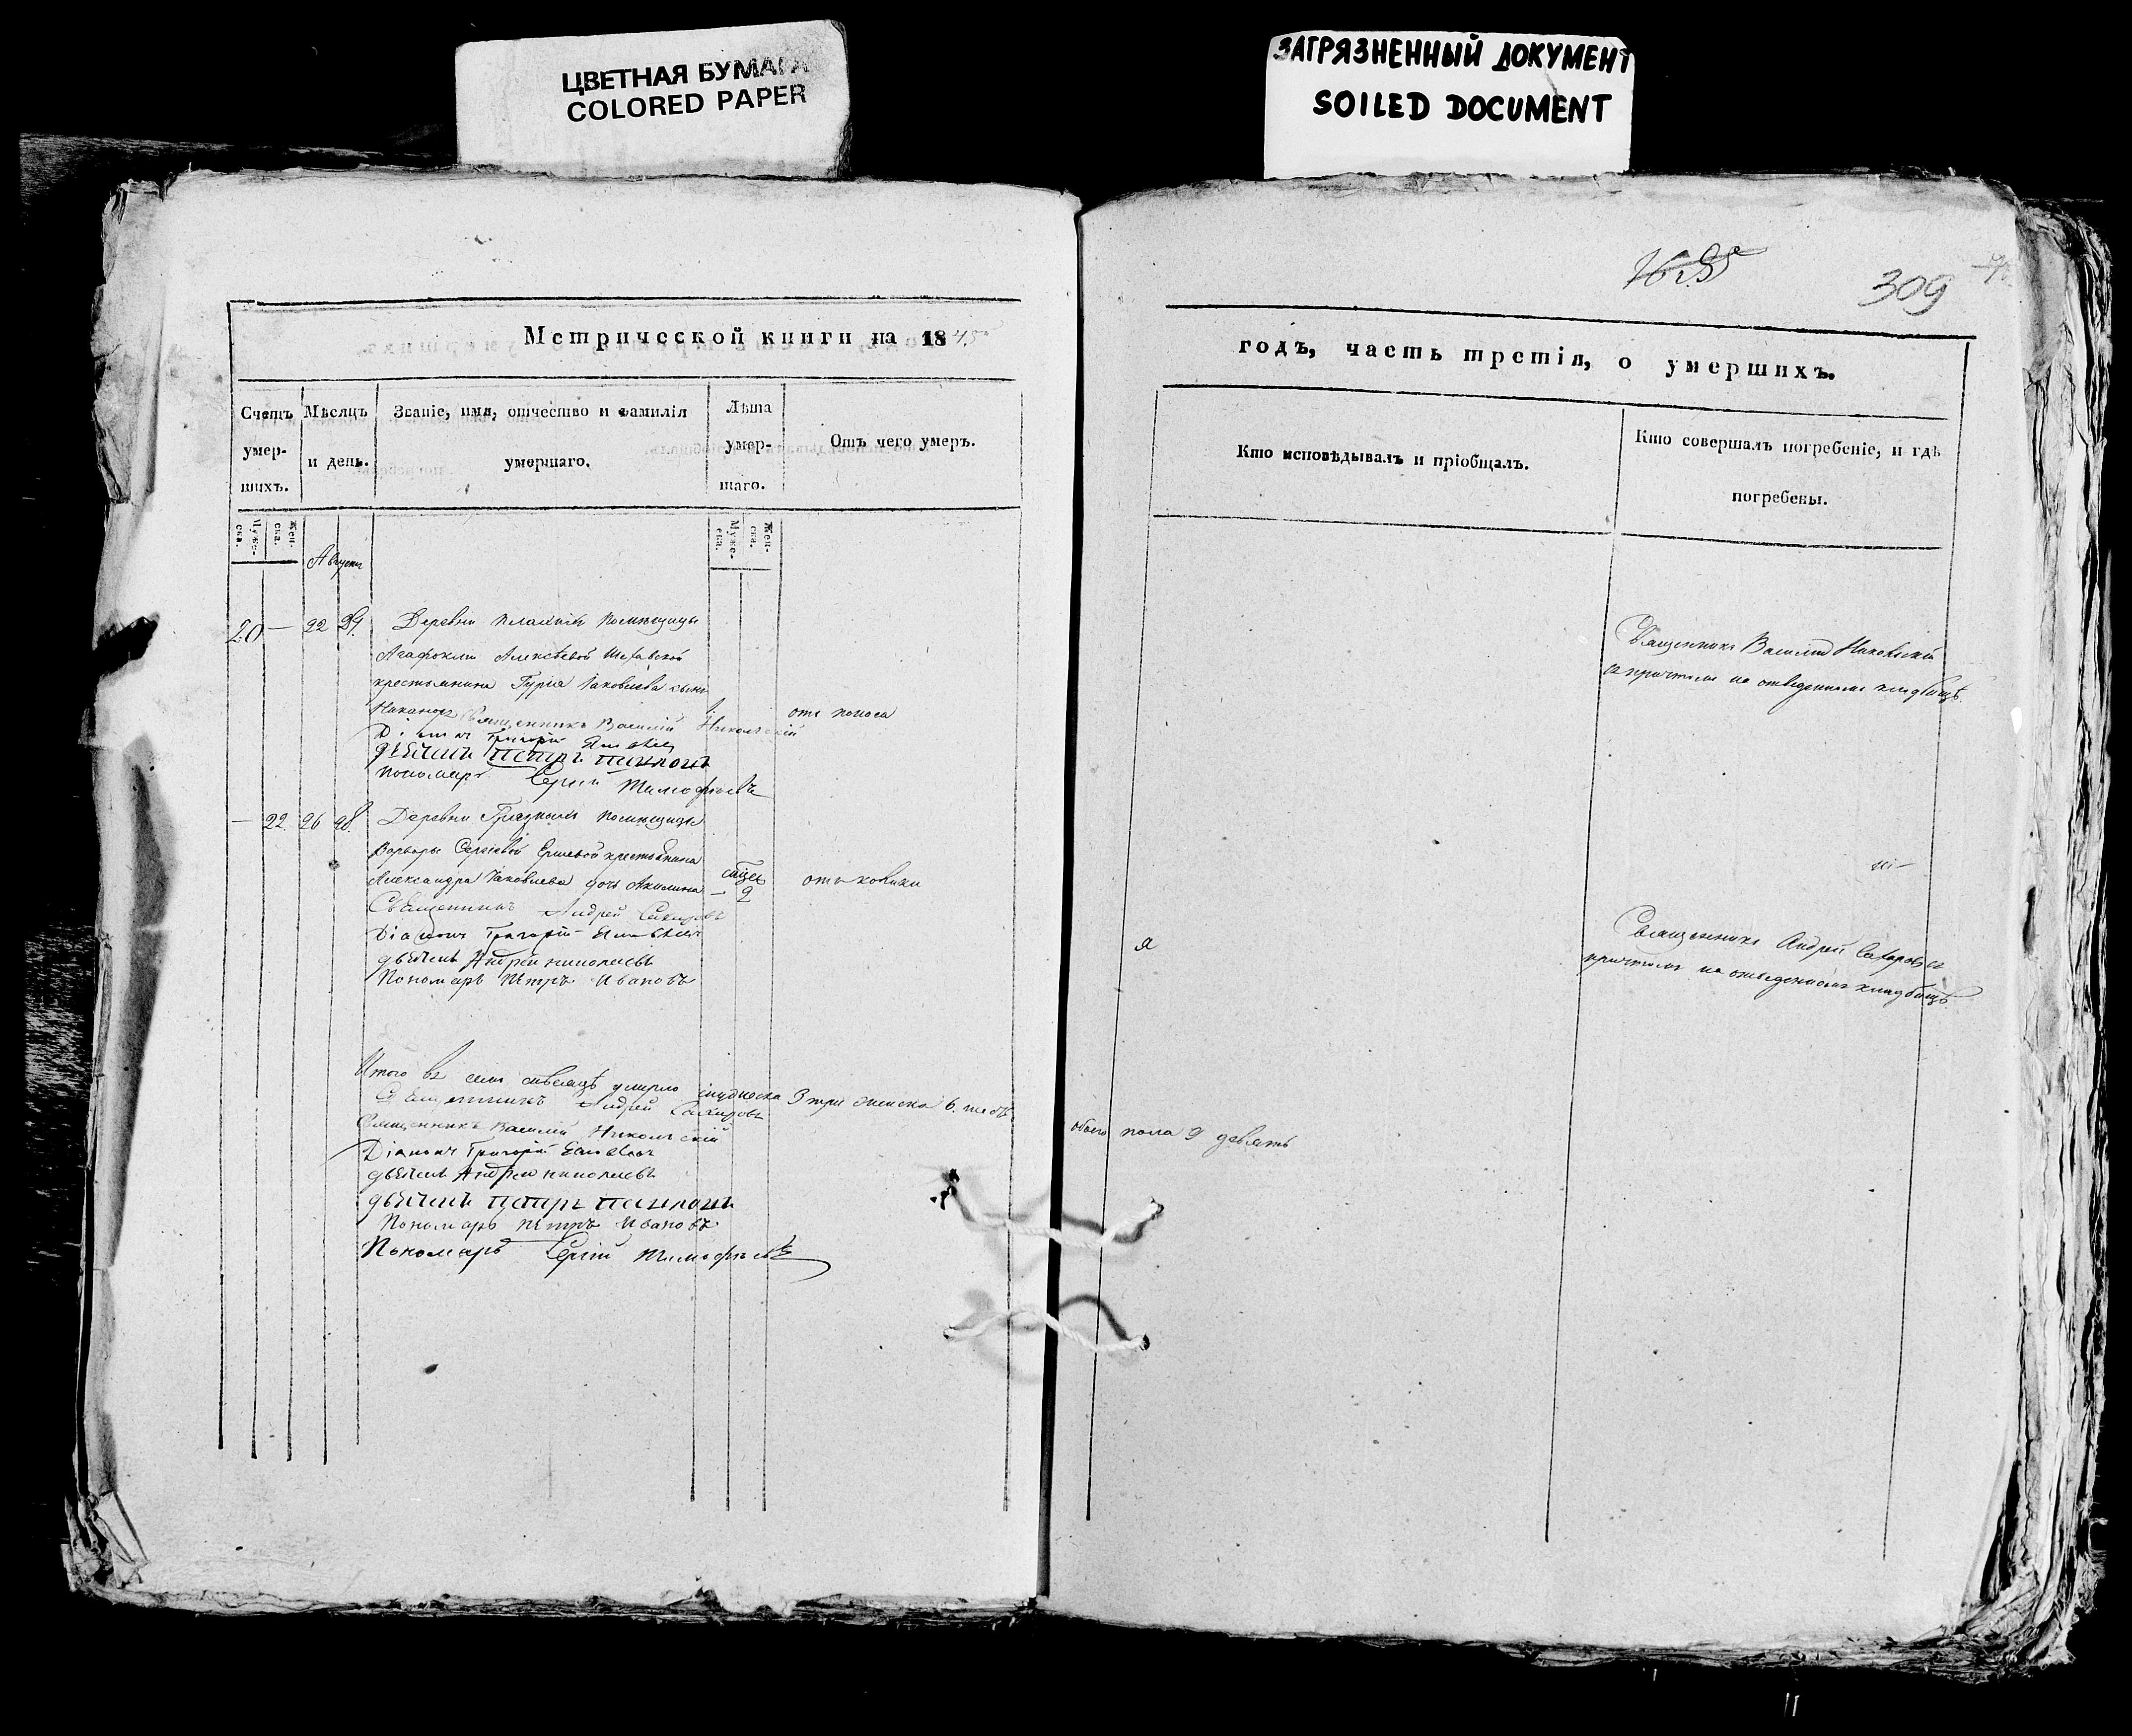 ЦВЕТНАЯ БУМАГА
COLORED PAPER
ЗАГРЯЗНЕННЫЙ ДОКУМЕНТ
SOILED DOCUMENT
309
Метрической книги на 1845
годъ, часть третія, о умершихъ.
Счетъ умер-шихъ.
Мѣсяцъ и день.
Званіе, имя, отчество и фамилія умершаго.
Лѣта умер-шаго.
Отъ чего умеръ.
Кто исповѣдывалъ и пріобщалъ.
Кто совершалъ погребеніе, и гдѣ погребены.
Муже-ска.
Жен-ска.
Муже-ска.
Жен-ска.
Августъ
20 — 22 24. Деревни помѣщицы
Агафокліи Алексѣевой
крестьянина Гурія Іаковлева сынъ
Никаноръ 1 отъ поноса
Священникъ Василій Никольскій
Діаконъ Григорій
дьячекъ Петръ
пономарь Сергій Тимофѣевъ
Священникъ Василій Никольскій
съ причтомъ на отведенномъ кладбищѣ.
— 22. 26 28. Деревни помѣщицы
Варвары Сергіевой крестьянина
Александра Іаковлева дочь Акилина — 2
Священникъ Андрей Сахаровъ
Діаконъ Григорій
дьячекъ Андрей Николаевъ
Пономарь Петръ Ивановъ
Священникъ Андрей Сахаровъ съ
причтомъ на отведенномъ кладбищѣ
Итого въ семъ мѣсяцѣ умерло мужеска 3 три женска 6. шесть
обоего пола 9 девять
Священникъ Андрей Сахаровъ
Священникъ Василій Никольскій
Діаконъ Григорій
дьячекъ Андрей Николаевъ
дьячекъ Петръ
Пономарь Петръ Ивановъ
Пономарь Сергій Тимофѣевъ